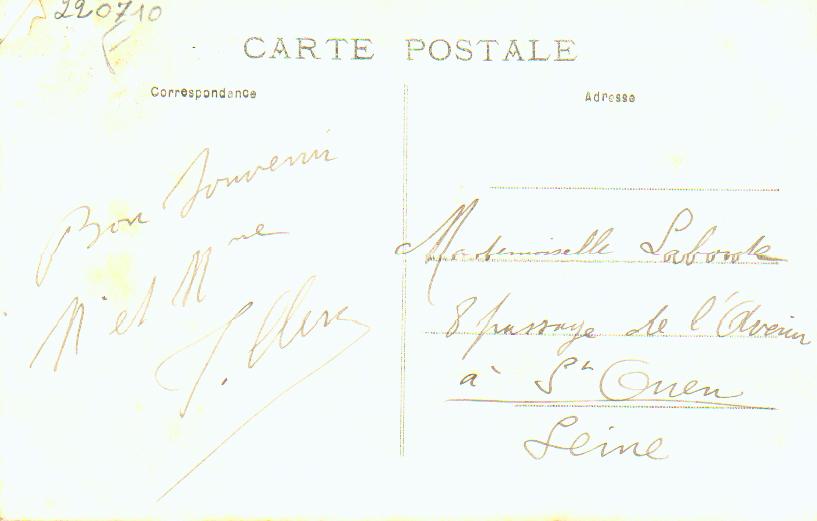 220710
CARTE POSTALE
Correspondance
Bon Souvenir
Mr et Mme
J. Clerc
Adresse
Mademoiselle
8 passage de l'Avenir
à St Ouen
Seine